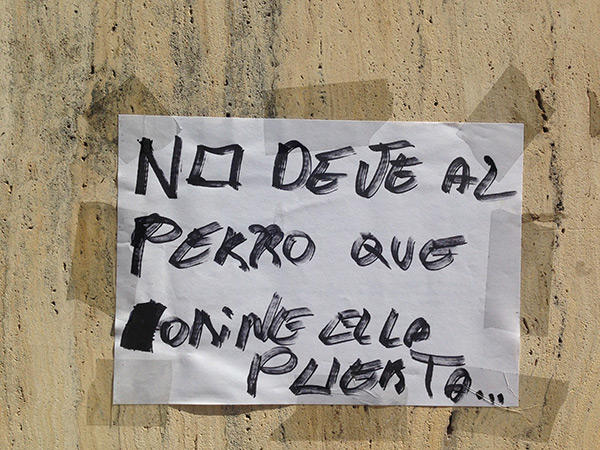 NO DEJE AL
PERRO QUE
ORINE EN LA
PUERTA...